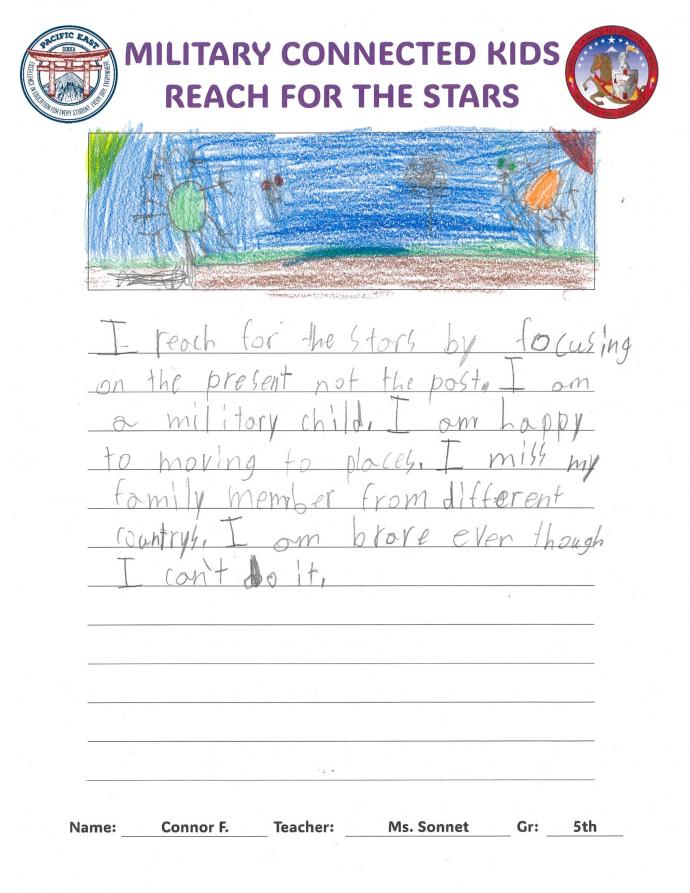 PACIFIC EAST
DODEA
EXCELLENCE IN EDUCATION FOR EVERY STUDENT, EVERY DAY, EVERYWHERE
MILITARY CONNECTED KIDS
REACH FOR THE STARS
I reach for the stars by focusing
on the present not the past. I am
a military child. I am happy
to moving to places. I miss my
family member from different
countrys. I am brave even though
I can't do it.
Name: Connor F. Teacher: Ms. Sonnet Gr: 5th